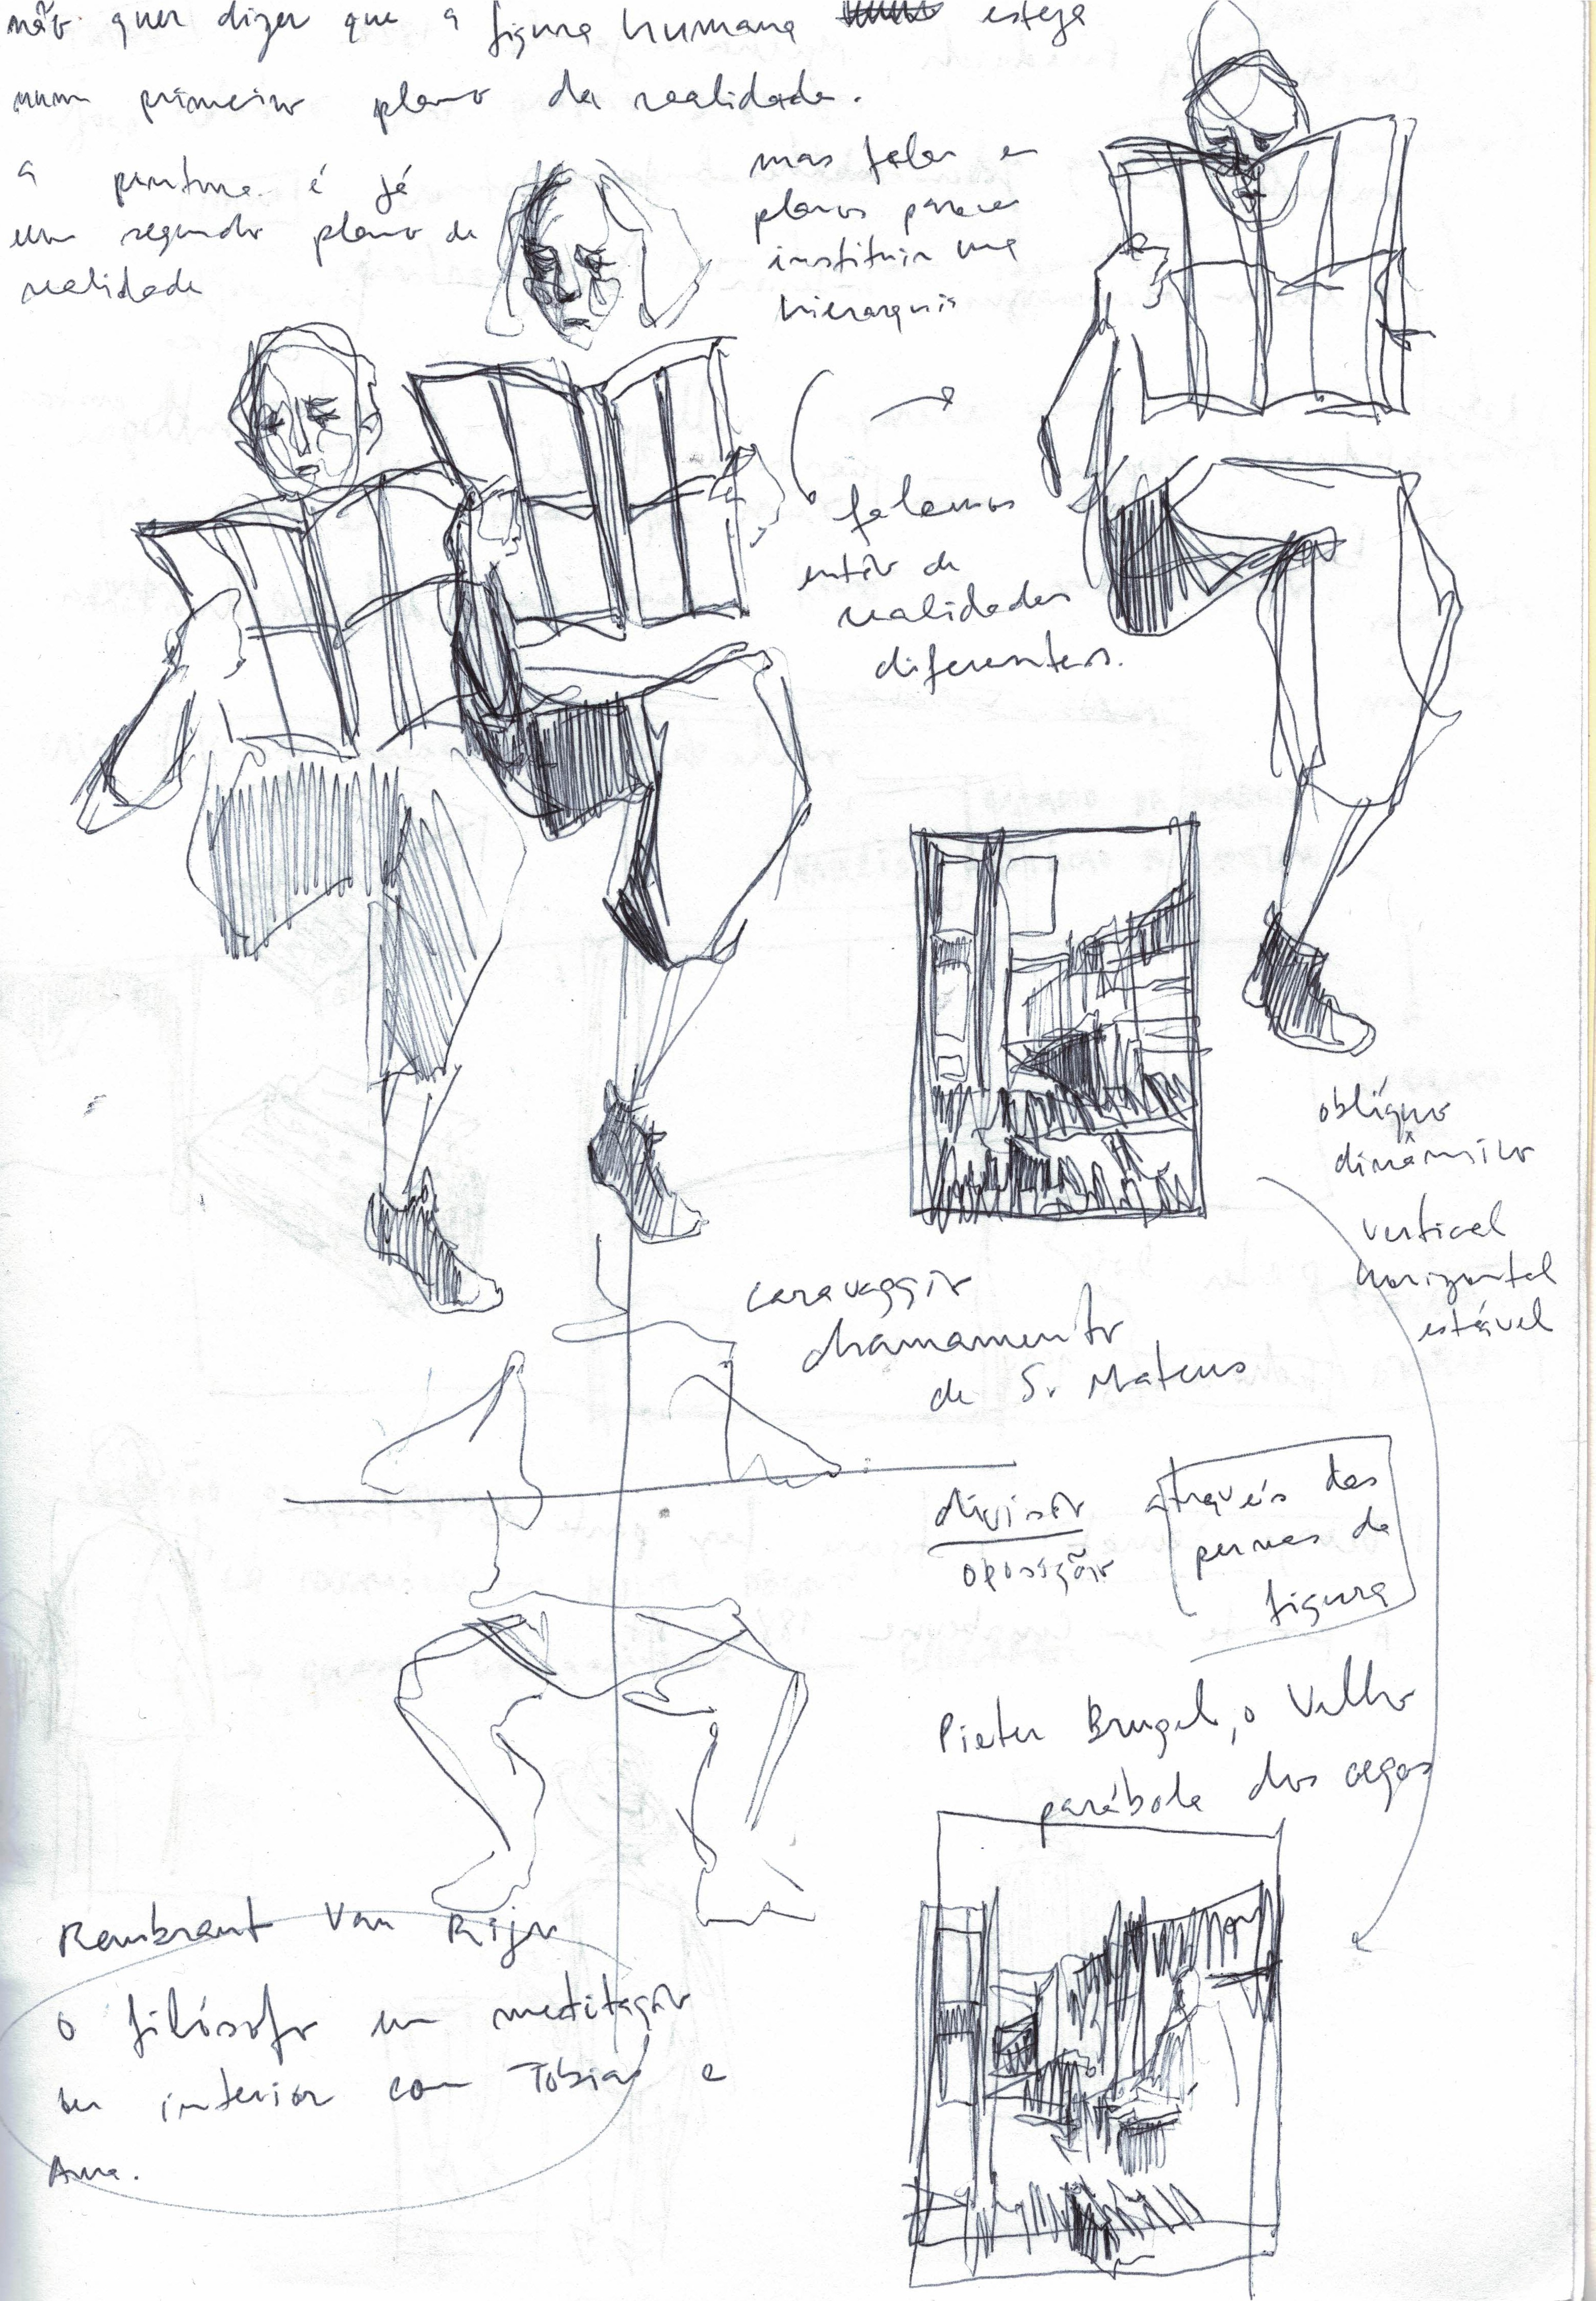 não quer dizer que a figura humana esteja
num primeiro plano da realidade.
a pintura é já
um segundo plano de
realidade
mas falar em
planos parece
instituir uma
hierarquia
falamos
então de
realidades
diferentes.
oblíquo
dinâmico
vertical
horizontal
estável
caravaggio
chamamento
de S. Mateus
divisão
oposição
através das
pernas da
figura
Pieter Brugel, o Velho
parábola dos cegos
Rembrant Van Rijn
O filósofo em meditação
ou interior com Tobias e
Ana.